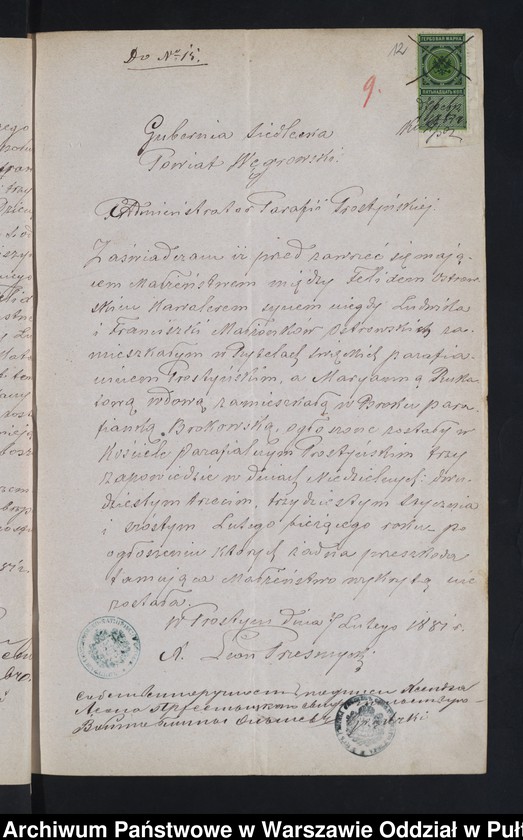 Do No 15.
12
9.
ГЕРБОВАЯ МАРКА
ПЯТЬНАДЦАТЬ КОП
Gubernia Siedlecka
Powiat Węgrowski.
Administrator Parafii Prostyńskiej
Zaświadczam iż przed zawrzeć się mają-
cem Małżeństwem między Felixem Ostrow-
skim Kawalerem synem niegdy Ludwika
i Franciszki Małżonków Ostrowskich za-
mieszkałym w Rytelach święckich parafia-
ninem Prostyńskim, a Maryanną
wdową zamieszkałą w Broku para-
fianką Brokowską, ogłoszone zostały w
Kościele parafialnym Prostyńskim trzy
zapowiedzie w dniach Niedzielnych: dwu-
dziestym trzecim, trzydziestym Stycznia
i szóstym Lutego bieżącego roku - po
ogłoszeniu których żadna przeszkoda
tamująca Małżeństwo wykrytą nie
została.
W Prostyni dnia 7 Lutego 1881 r.
X. Leon Przesmycki
собственноручность подписи Ксендза
Леона Пресмыцкого
Войтъ гмины
Archiwum Państwowe w Warszawie Oddział w Puł